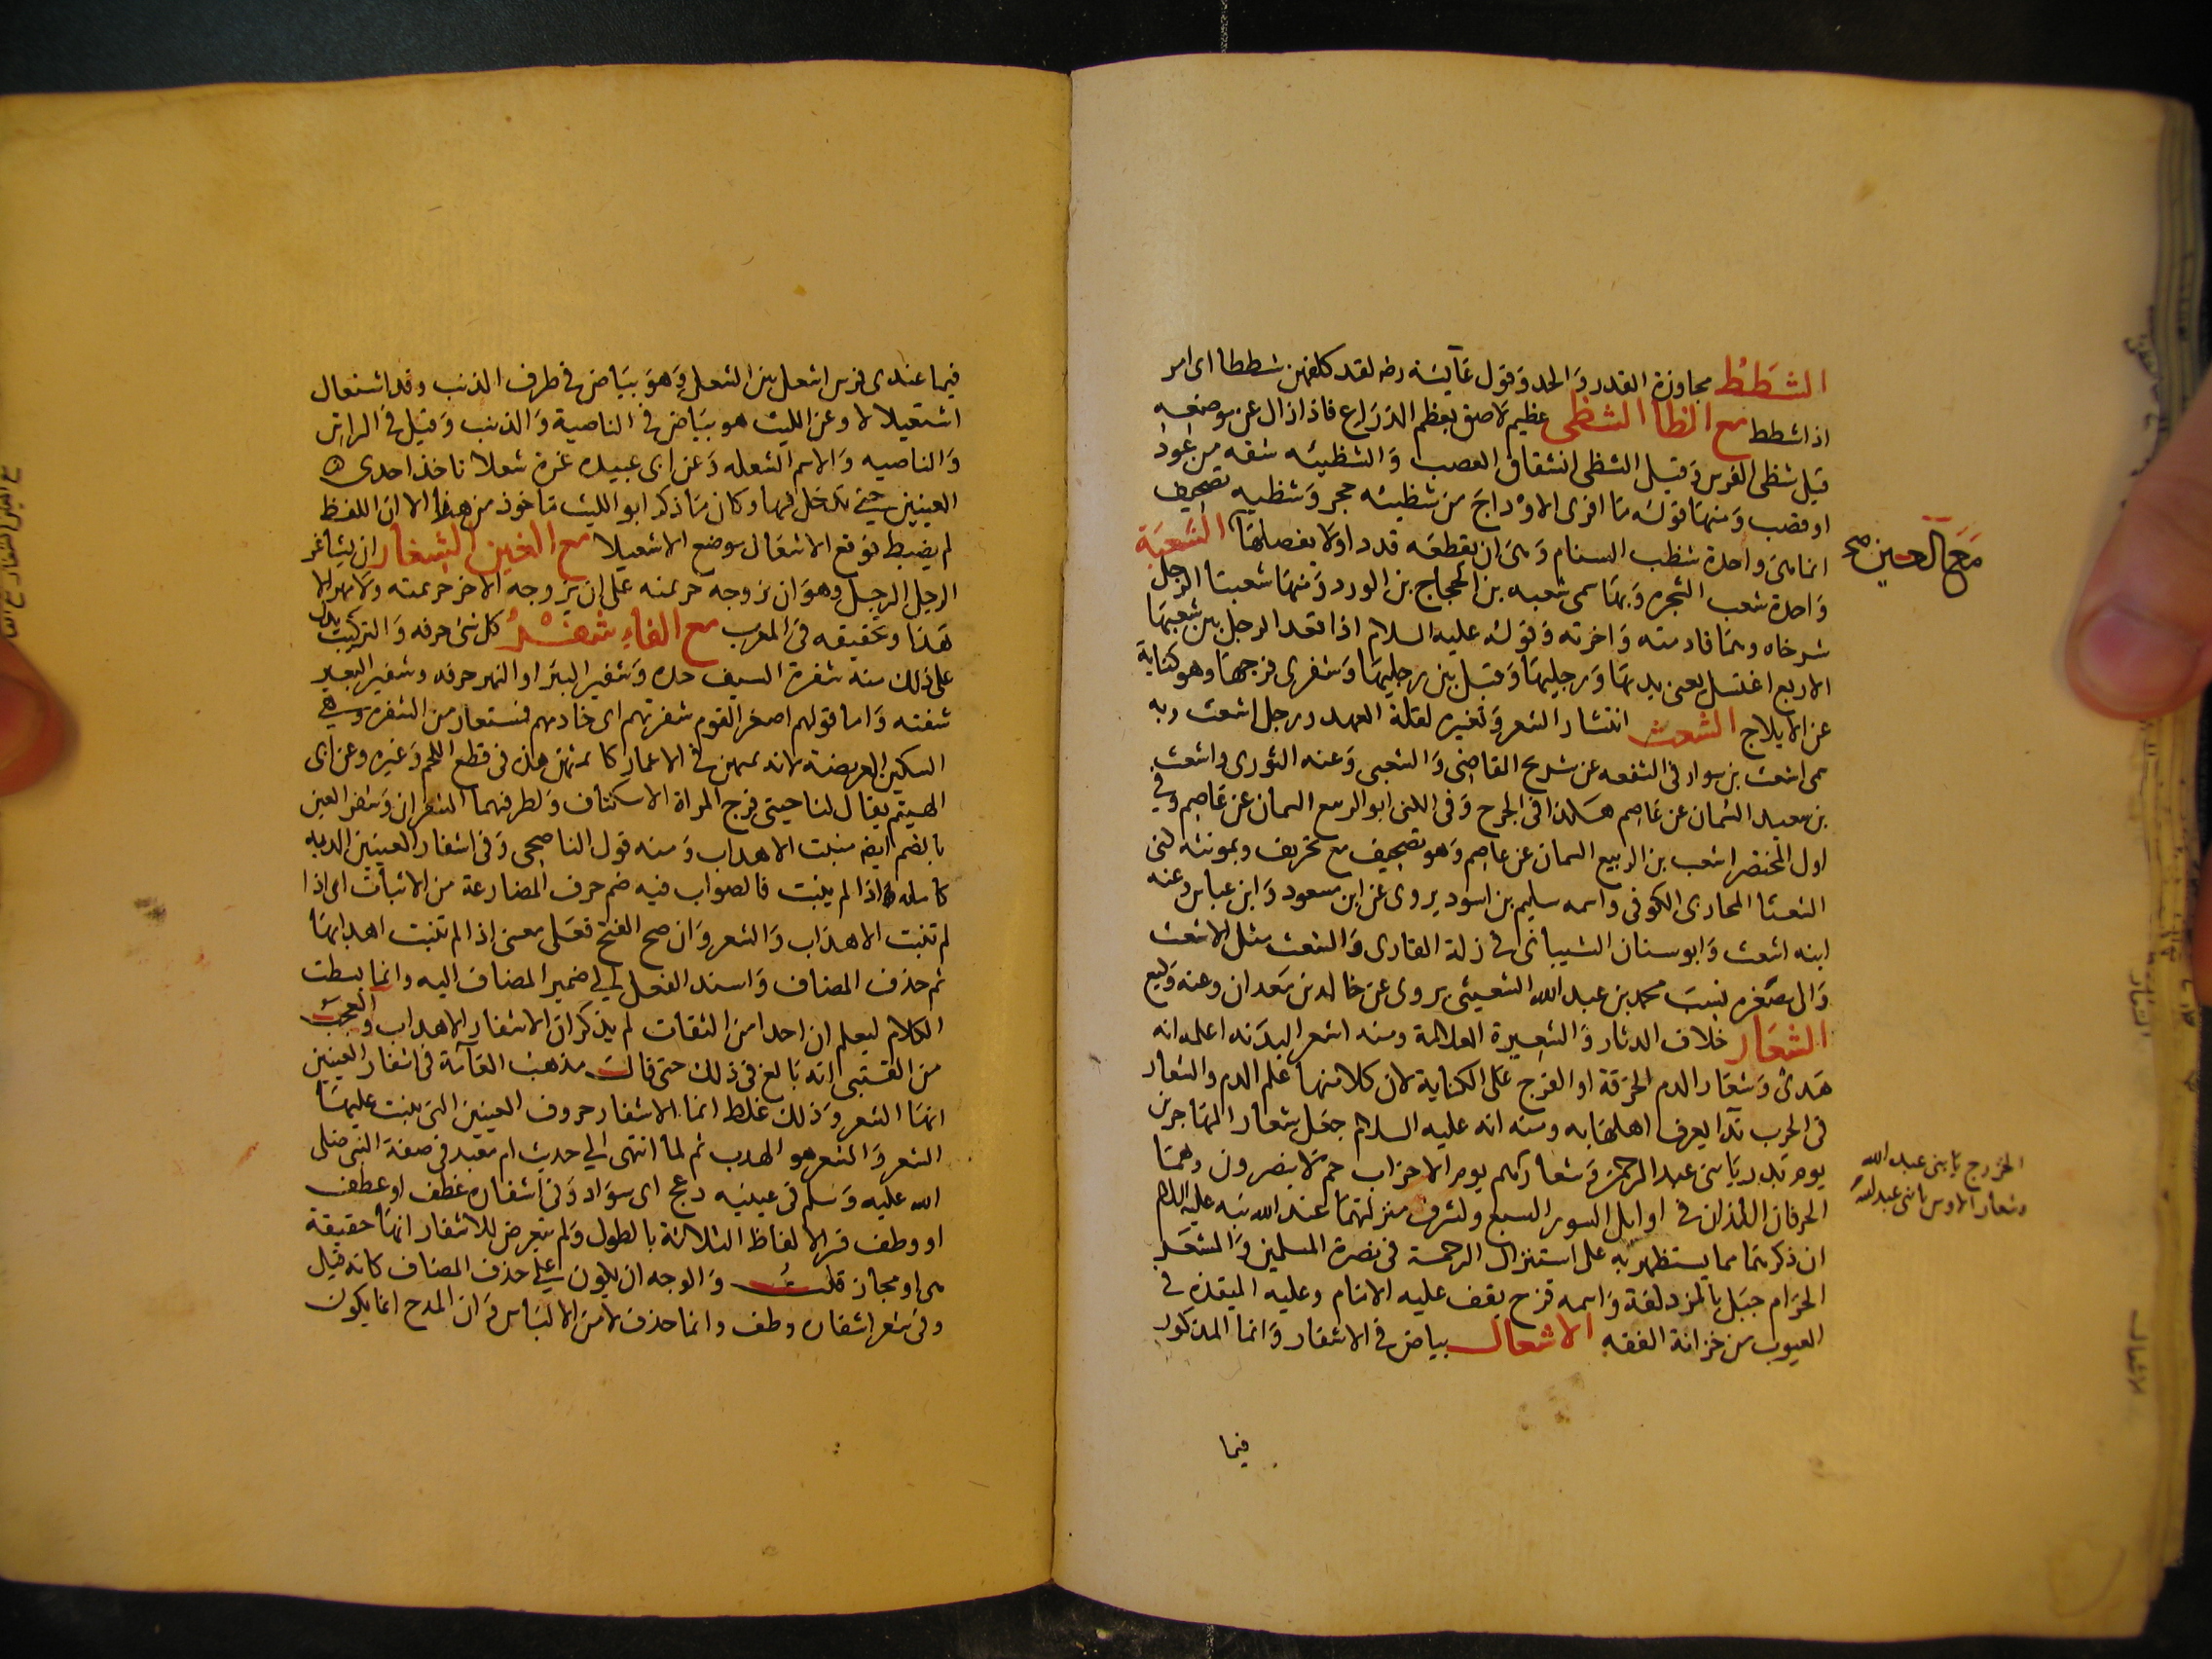 الشطط مجاوزة القدر والحد وقول عايشة رضه لقد كلفهن شططا اى امر
اذا شطط مع الظا الشظى عظيم لاصق بعظم الذراع فاذا زال عن موضعه
قيل شظى الفرس وقيل الشظى انشقاق العصب والشظيئه شقه من عود
او قصب ومنها قوله ما افرى الاوداج من شظيئه حجر وشظيه تصحيف
انما هى واحدة شظب السنام وهى ان يقطعه قددا ولا يفصلها الشعبة
مع العين صح
واحدة شعب الشجره وبها سمى شعبه بن الحجاج بن الورد ومنها شعبتا الرجل
شرخاه وهما قادمته واخرته وقوله عليه السلام اذا قعد الرجل بين شعبها
الاربع اغتسل يعنى يديها ورجليها وقيل بين رجليها وشفرى فرجها وهو كناية
عن الايلاج الشعث انتشار الشعر وتغيره لقلة العهد ورجل اشعث وبه
سمى اشعث بن سوار فى الشفعه عن شريح القاضى والشعبى وعنه الثورى واشعث
بن سعيد السمان عن عاصم هكذا فى الجرح وفى الكنى ابو الربيع السمان عن عاصم وفى
اول المختصر اشعب بن الربيع السمان عن عاصم وهو تصحيف مع تحريف وبمونثه كنى
ابو الشعثا المحاربى الكوفى واسمه سليم بن اسود يروى عن ابن مسعود وابن عباس وعنه
ابنه اشعث وابو سنان الشيبانى فى زلة القارى والشعث مثل الاشعث
وال مصغره نسب محمد بن عبد الله الشعيثى يروى عن خالد بن معدان وعنه وكيع
الشعار خلاف الدثار والشعيرة العلامة ومنه اشعر البدنه اعلمه انه
هدى وشعار الدم الخرقة او الفرج على الكناية لان كلا منهما علم الدم والشعار
فى الحرب ندا يعرف اهلها به ومنه انه عليه السلام جعل شعار المهاجرين
يوم بدر يا بنى عبد الرحمن وشعارهم يوم الاحزاب حم لا ينصرون وهما
الخزرج يا بنى عبد الله
وشعار الاوس يا بنى عبيد الله
الحرفان اللذان فى اوايل السور السبع ولشرف منزلتهما عند الله نبه عليه السلام
ان ذكرهما مما يستظهر به على استنزال الرحمة فى نصرة المسلمين والمشعر
الحرام جبل بالمزدلفة واسمه قزح يقف عليه الامام وعليه الميقدة فى
العيوب من خزانة الفقه الاشعال بياض فى الاشفار وانما المذكور
فيما
فيما عندى فرس اشعل بين الشعل وهو بياض فى طرف الذنب وقد اشعال
اشعيلالا وعن الليث هو بياض فى الناصية والذنب وقيل فى الراس
والناصيه والاسم الشعله وعن ابى عبيده غرة شعلا تاخذ احدى
العينين حتى تدخل فيها وكان ما ذكر ابو الليث ماخوذ من هذا الا ان اللفظ
لم يضبط فوقع الاشعال موضع الاشعيلا مع الغين الشغار ان يشاغر
الرجل الرجل وهو ان يزوجه حرمته على ان يزوجه الاخر حرمته ولا مهر الا
هذا وتحقيقه فى المعرب مع الفاء شفر كل شى حرفه والتركيب يدل
على ذلك منه شفرة السيف حده وشفير البير او النهر حرفه وشفير البعير
شفته واما قولهم اصغر القوم شفرتهم اى خادمهم فمستعار من الشفره وهى
السكين العريضه لانه يمتهن فى الاعمال كما تمتهن هذه فى قطع اللحم وغيره وعن ابى
الهيثم يقال لناحيتى فرج المراة الاسكتان ولطرفيهما الشفران وشفر العين
بالضم ايضا منبت الاهداب ومنه قول الناصحى وفى اشفار العينين الدية
كاملة اذا لم ينبت فالصواب فيه ضم حرف المضارعة من الانبات اى اذا
لم تنبت الاهداب والشعر وان صح الفتح فعلى معنى اذا لم تنبت اهدابها
ثم حذف المضاف واسند الفعل الى ضمير المضاف اليه وانما بسطت
الكلام ليعلم ان احدا من الثقات لم يذكر ان الاشفار الاهداب والعجب
من القتبى انه بالغ فى ذلك حتى قال مذهب العامة فى اشفار العينين
انها الشعر وذلك غلط انما الاشفار حروف العينين التى ينبت عليها
الشعر والشعر هو الهدب ثم لما انتهى الى حديث ام معبد فى صفة النبى صلى
الله عليه وسلم فى عينيه دعج اى سواد وفى اشفاره غطف او عطف
او وطف فسر الالفاظ الثلاثة بالطول ولم يتعرض للاشفار انها حقيقة
هى او مجاز قلت والوجه ان يكون على حذف المضاف كانه قيل
وفى شعر اشفاره وطف وانما حذف لامن الالباس وان المدح انما يكون